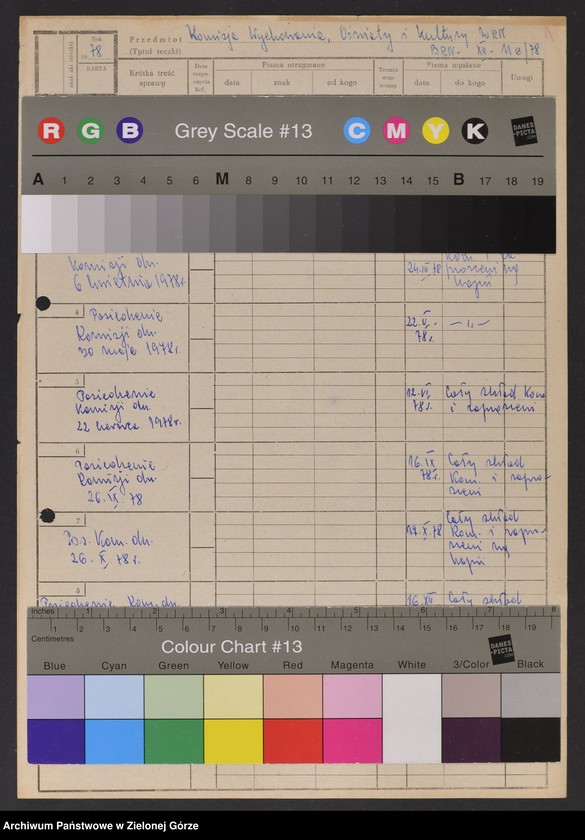 Rok
1978
KARZA
znak akt (teczki)
Przedmiot
(Tytuł teczki)
Komisja Wychowania, Oświaty i Kultury WRN
BRN. XV. 112/78
Krótka treść
sprawy
Data
rozpo-
częcia
Ref.
Pisma otrzymane
data
znak
od kogo
Termin
Pisma wysłane
data
do kogo
Uwagi
R G B
Grey Scale #13
C M Y K
DANES
-PICTA
.COM
A 1 2 3 4 5 6 M 8 9 10 11 12 13 14 15 B 17 18 19
Komisji dn.
6 kwietnia 1978r.
24.III.78
Kom. i za
proszeni wg
listy
4
Posiedzenie
Komisji dn.
30 maja 1978r.
22.V.
78r.
— " —
5
Posiedzenie
Komisji dn.
22 czerwca 1978r.
12.VI
78r.
Cały skład Kom
i zaproszeni
6
Posiedzenie
Komisji dn.
26.IX.78
16.IX
78r.
Cały skład
Kom. i zapro-
szeni
7
Pos. Kom. dn.
26. X. 78r.
17.X.78
Cały skład
Kom. i zapro-
szeni wg
listy
8
Posiedzenie Kom. dn.
16.XII
Cały skład
Inches 1 2 3 4 5 6 7 8
1 2 3 4 5 6 7 8 9 10 11 12 13 14 15 16 17 18 19
Centimetres
Colour Chart #13
DANES
-PICTA
.COM
Blue Cyan Green Yellow Red Magenta White 3/Color Black
Archiwum Państwowe w Zielonej Górze